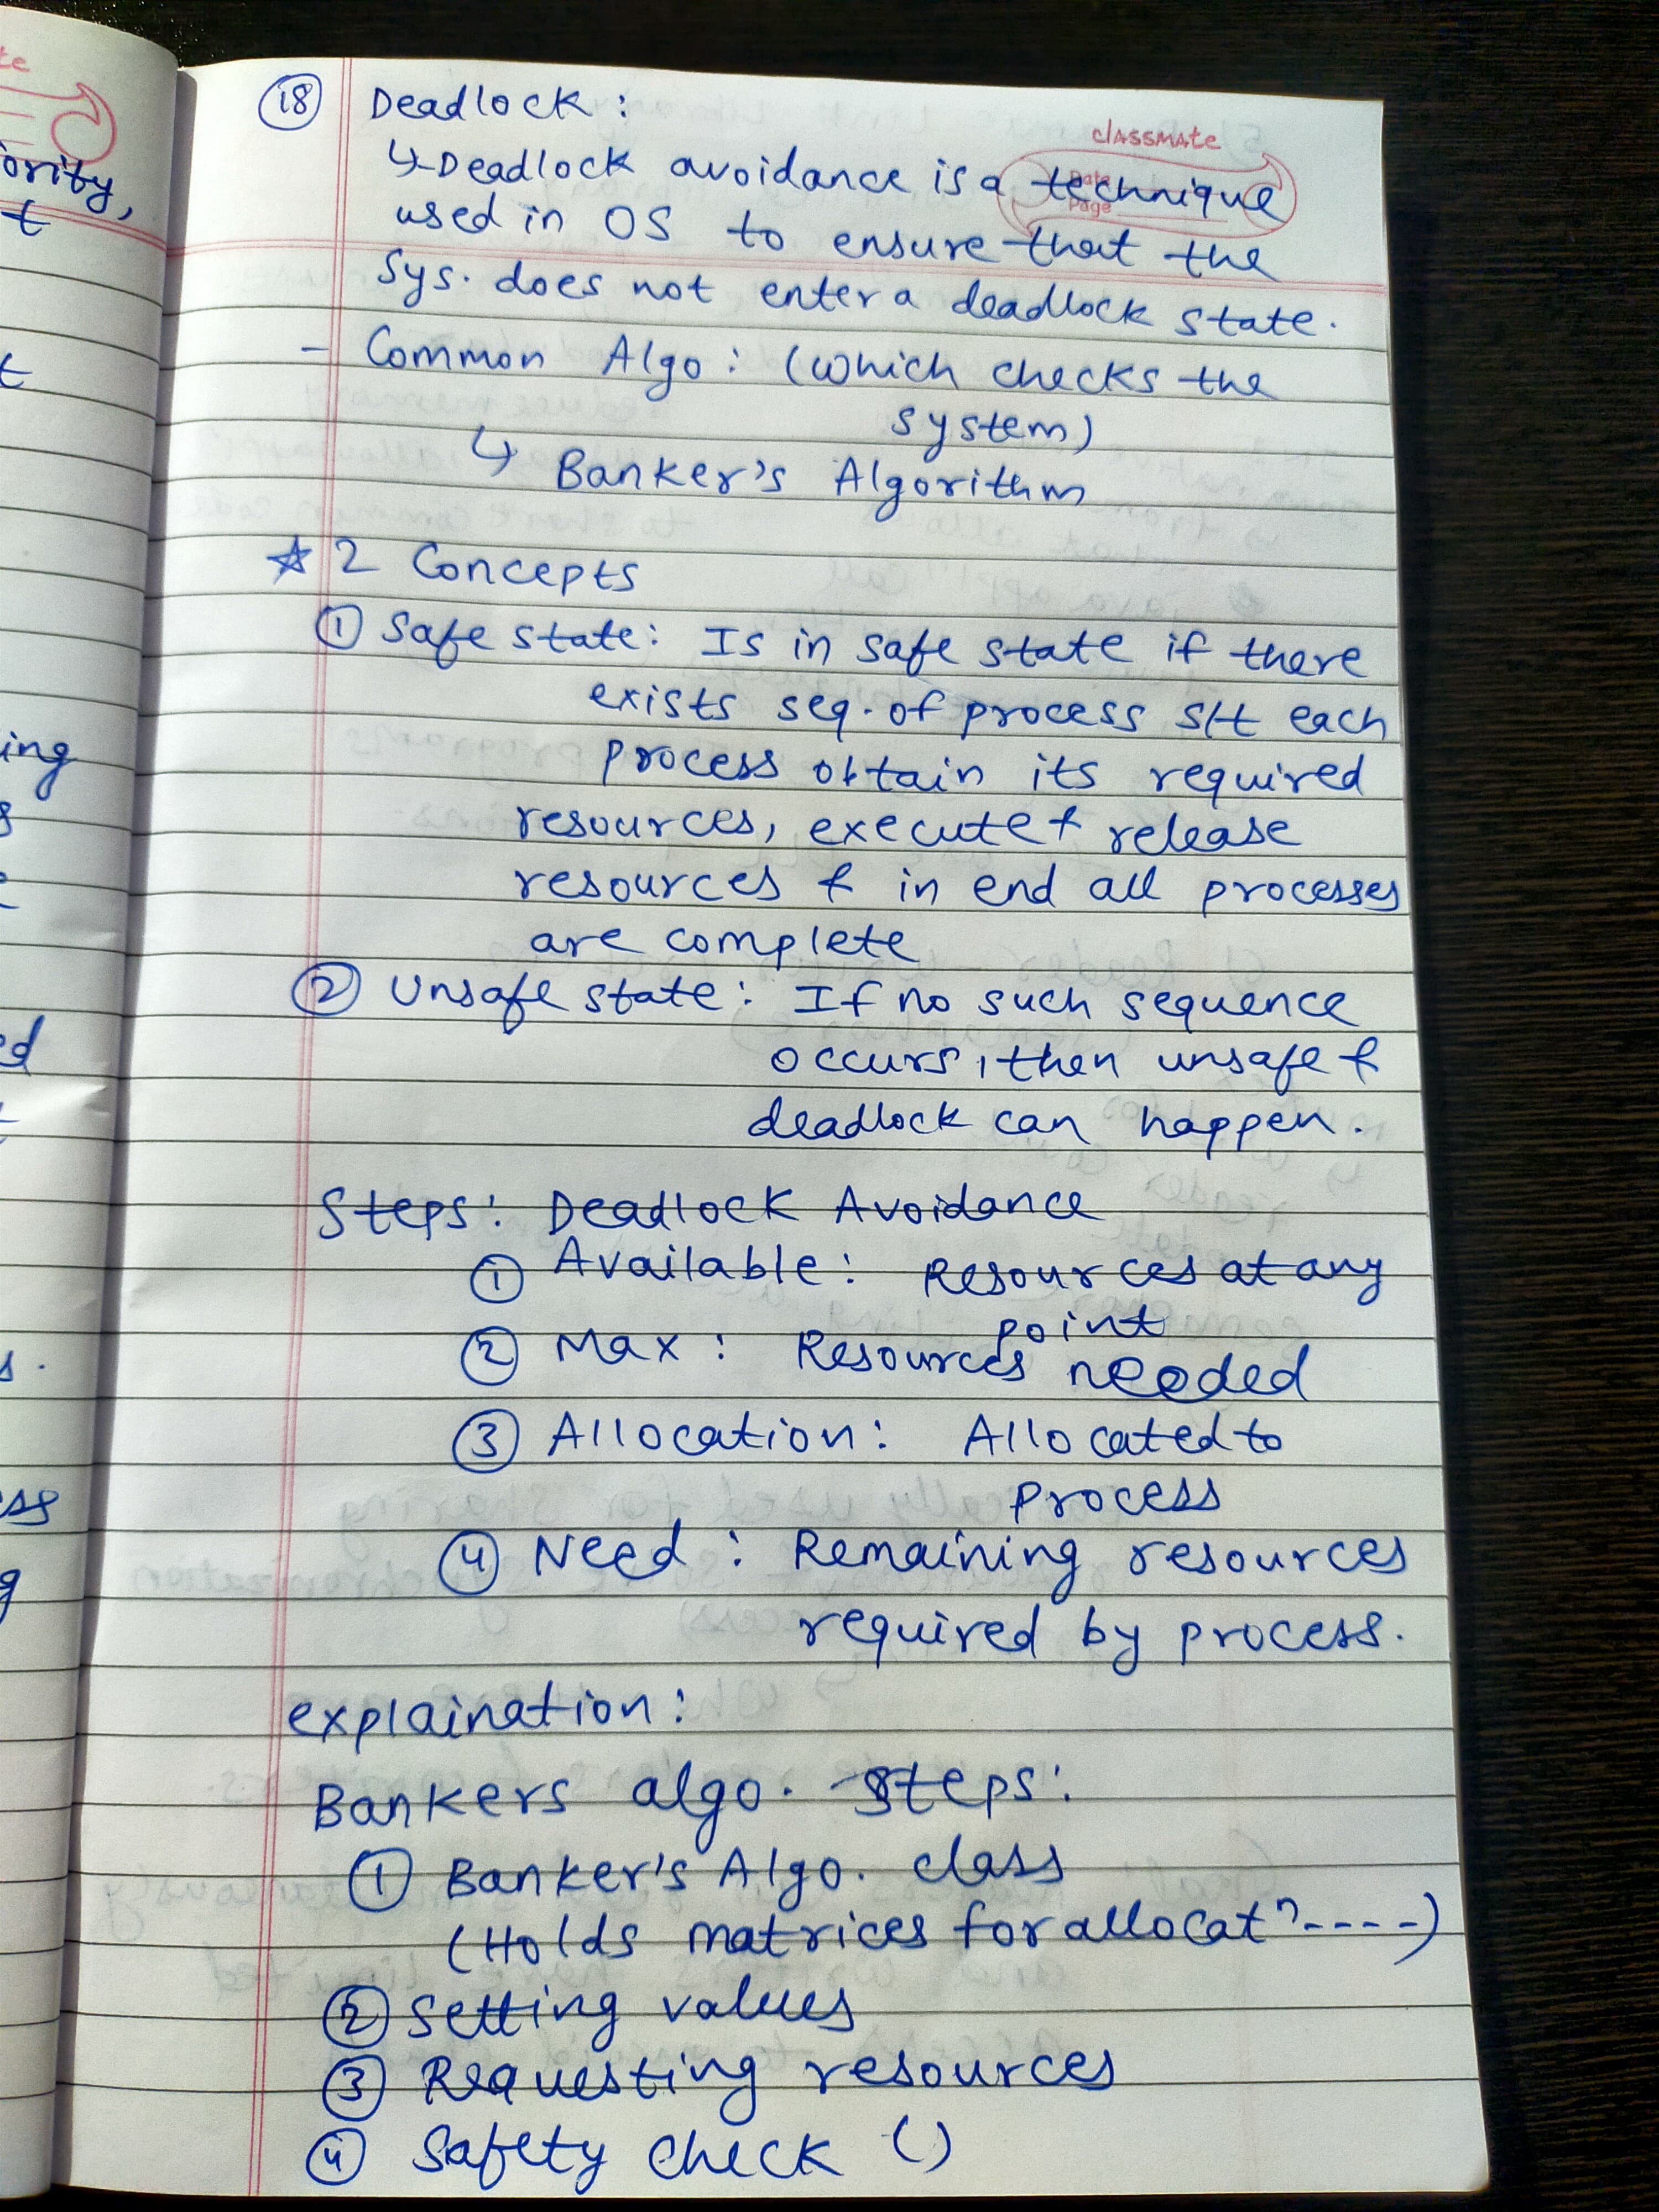 18 Deadlock :
classmate
Date
Page
↳ Deadlock avoidance is a technique
used in OS to ensure that the
Sys. does not enter a deadlock state.
- Common Algo : (which checks the
system)
↳ Banker's Algorithm
☆ 2 Concepts
① Safe state : Is in safe state if there
exists seq. of process s/t each
process obtain its required
resources, execute & release
resources & in end all processes
are complete
② Unsafe state : If no such sequence
occurs, then unsafe &
deadlock can happen.
Steps : Deadlock Avoidance
① Available : Resources at any
point
② Max : Resources needed
③ Allocation : Allocated to
process
④ Need : Remaining resources
required by process.
explaination :
Bankers algo. steps :
① Banker's Algo. class
(Holds matrices for allocatn ----)
② Setting values
③ Requesting resources
④ Safety check ()
ority,
t
t
ing
ed
s.
ess
g